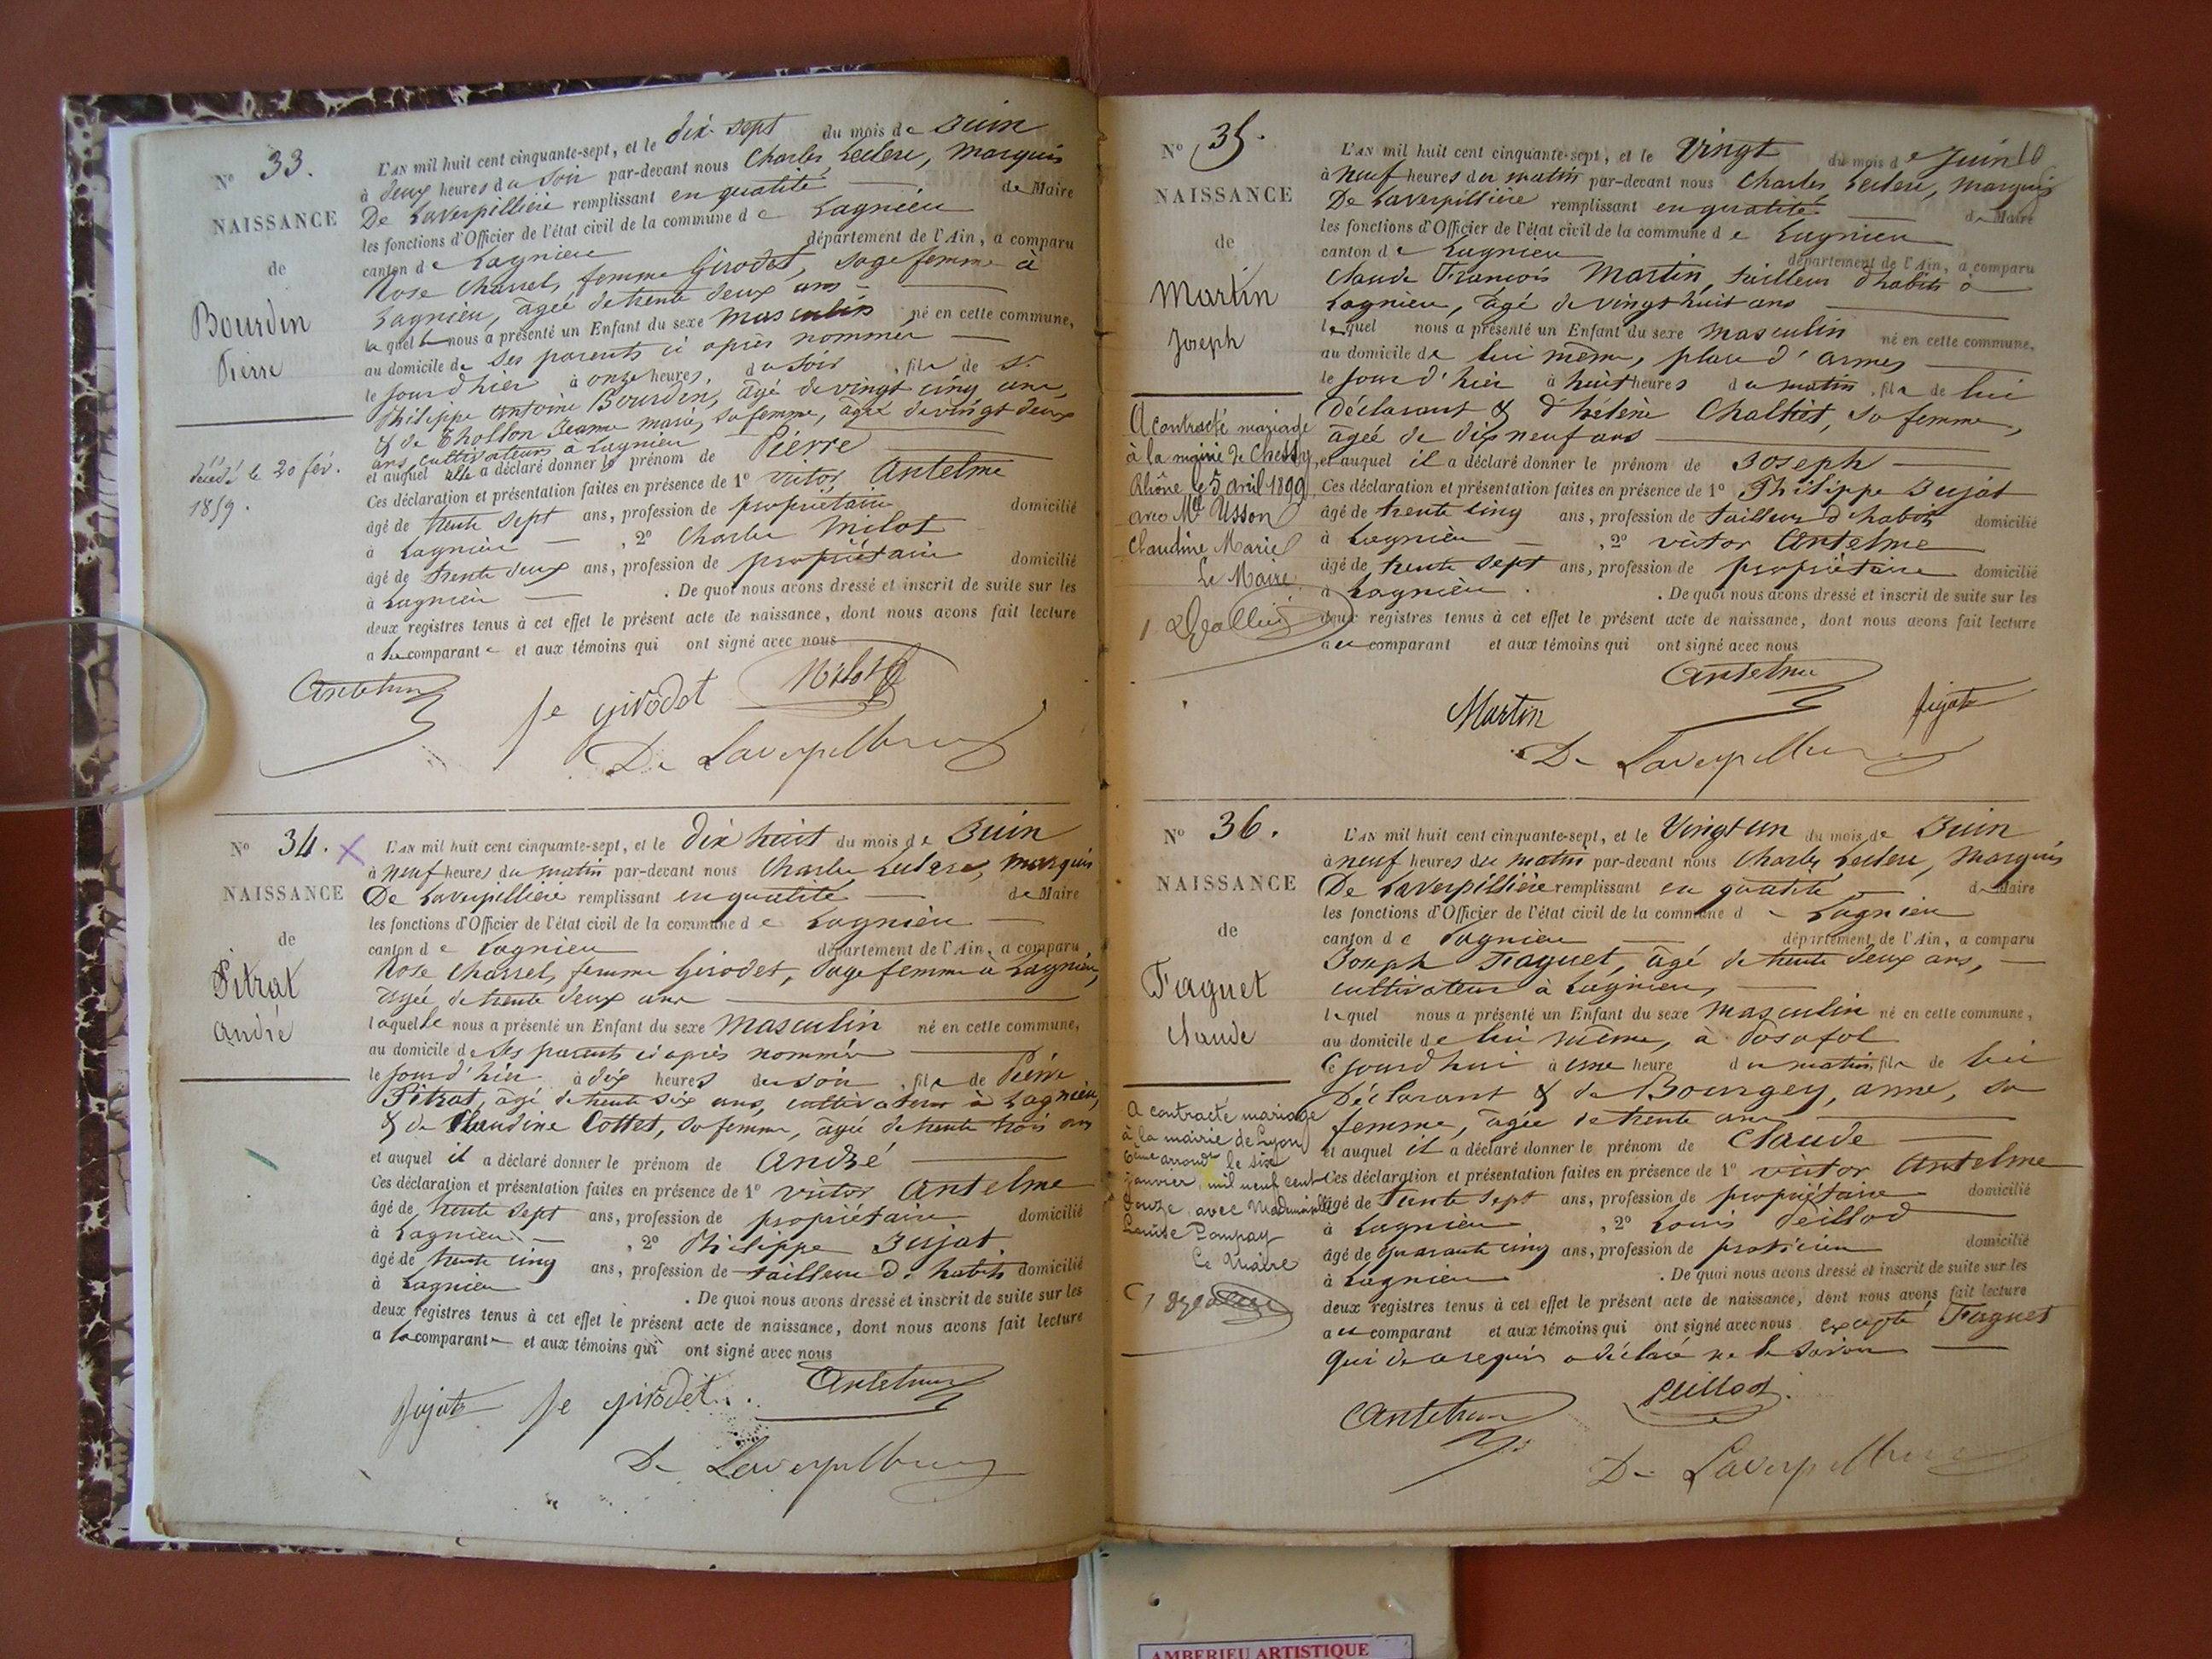 N° 33.
NAISSANCE
de
Bourdin
Pierre
décédé le 20 fév.
1859.
L'AN mil huit cent cinquante-sept, et le dix-sept du mois de Juin
à deux heures du soir par-devant nous Charles Leclerc, Marquis
De Laverpillière remplissant en qualité de Maire
les fonctions d'Officier de l'état civil de la commune de Lagnieu
canton de Lagnieu département de l'Ain, a comparu
Rose Charret, femme Girodet, sage femme à
Lagnieu, âgée de trente deux ans
laquelle nous a présenté un Enfant du sexe masculin né en cette commune,
au domicile de ses parents ci après nommés
le jour d'hier à onze heures du soir, fils de Sr
Philippe Antoine Bourdin, âgé de vingt cinq ans,
& de Thollon Jeanne Marie, sa femme, âgée de vingt deux
ans, cultivateurs à Lagnieu
et auquel elle a déclaré donner le prénom de Pierre
Ces déclaration et présentation faites en présence de 1° Victor Antelme
âgé de trente sept ans, profession de propriétaire domicilié
à Lagnieu , 2° Charles Milot
âgé de trente deux ans, profession de propriétaire domicilié
à Lagnieu . De quoi nous avons dressé et inscrit de suite sur les
deux registres tenus à cet effet le présent acte de naissance, dont nous avons fait lecture
a la comparante et aux témoins qui ont signé avec nous
Antelme
fe girodet
Milot
De Laverpilliere
N° 34.
NAISSANCE
de
Pitrat
André
L'AN mil huit cent cinquante-sept, et le dix huit du mois de Juin
à neuf heures du matin par-devant nous Charles Leclerc, Marquis
De Laverpillière remplissant en qualité de Maire
les fonctions d'Officier de l'état civil de la commune de Lagnieu
canton de Lagnieu département de l'Ain, a comparu
Rose Charret, femme Girodet, Sage femme à Lagnieu,
âgée de trente deux ans
laquelle nous a présenté un Enfant du sexe masculin né en cette commune,
au domicile de ses parents ci après nommés
le jour d'hier à dix heures du soir, fils de Pierre
Pitrat, âgé de trente six ans, cultivateur à Lagnieu,
& de Claudine Cottet, sa femme, âgée de trente trois ans
et auquel il a déclaré donner le prénom de André
Ces déclaration et présentation faites en présence de 1° Victor Antelme
âgé de trente sept ans, profession de propriétaire domicilié
à Lagnieu , 2° Philippe Jujat
âgé de trente cinq ans, profession de tailleur d'habits domicilié
à Lagnieu . De quoi nous avons dressé et inscrit de suite sur les
deux registres tenus à cet effet le présent acte de naissance, dont nous avons fait lecture
a la comparante et aux témoins qui ont signé avec nous
Jujat fe girodet. Antelme
De Laverpilliere
N° 35.
NAISSANCE
de
Martin
Joseph
A contracté mariage
à la mairie de Chessy,
Rhône le 5 avril 1899
avec Mlle Usson
Claudine Marie
Le Maire
L'AN mil huit cent cinquante-sept, et le Vingt du mois de Juin
à neuf heures du matin par-devant nous Charles Leclerc, Marquis
De Laverpillière remplissant en qualité de Maire
les fonctions d'Officier de l'état civil de la commune de Lagnieu
canton de Lagnieu département de l'Ain, a comparu
Claude François Martin, tailleur d'habits à
Lagnieu, âgé de vingt huit ans
lequel nous a présenté un Enfant du sexe masculin né en cette commune,
au domicile de lui même, place d'armes
le jour d'hier à huit heures du matin, fils de lui
Déclarant & d'hélène Chaltet, sa femme,
âgée de dix neuf ans
et auquel il a déclaré donner le prénom de Joseph
Ces déclaration et présentation faites en présence de 1° Philippe Jujat
âgé de trente cinq ans, profession de tailleur d'habits domicilié
à Lagnieu , 2° Victor Antelme
âgé de trente sept ans, profession de propriétaire domicilié
à Lagnieu . De quoi nous avons dressé et inscrit de suite sur les
deux registres tenus à cet effet le présent acte de naissance, dont nous avons fait lecture
au comparant et aux témoins qui ont signé avec nous
Antelme
Martin
Jujat
De Laverpilliere
N° 36.
NAISSANCE
de
Faguet
Claude
A contracté mariage
à la mairie de Lyon
6ème arrondt le six
janvier mil neuf cent
douze avec Mademoiselle
Louise Pompay
Le Maire
L'AN mil huit cent cinquante-sept, et le Vingt un du mois de Juin
à neuf heures du matin par-devant nous Charles Leclerc, Marquis
De Laverpillière remplissant en qualité de Maire
les fonctions d'Officier de l'état civil de la commune de Lagnieu
canton de Lagnieu département de l'Ain, a comparu
Joseph Faguet, âgé de trente deux ans,
cultivateur à Lagnieu,
lequel nous a présenté un Enfant du sexe masculin né en cette commune,
au domicile de lui même, à Posafol
Cejourd'hui à une heure du matin, fils de lui
Déclarant & de Bourgey, anne, sa
femme, âgée de trente ans
et auquel il a déclaré donner le prénom de Claude
Ces déclaration et présentation faites en présence de 1° Victor Antelme
âgé de trente sept ans, profession de propriétaire domicilié
à Lagnieu , 2° Louis Peillod
âgé de quarante cinq ans, profession de praticien domicilié
à Lagnieu . De quoi nous avons dressé et inscrit de suite sur les
deux registres tenus à cet effet le présent acte de naissance, dont nous avons fait lecture
au comparant et aux témoins qui ont signé avec nous excepté Faguet
qui de ce requis a déclaré ne le savoir
Antelme
Peillod.
De Laverpilliere
AMBERIEU ARTISTIQUE